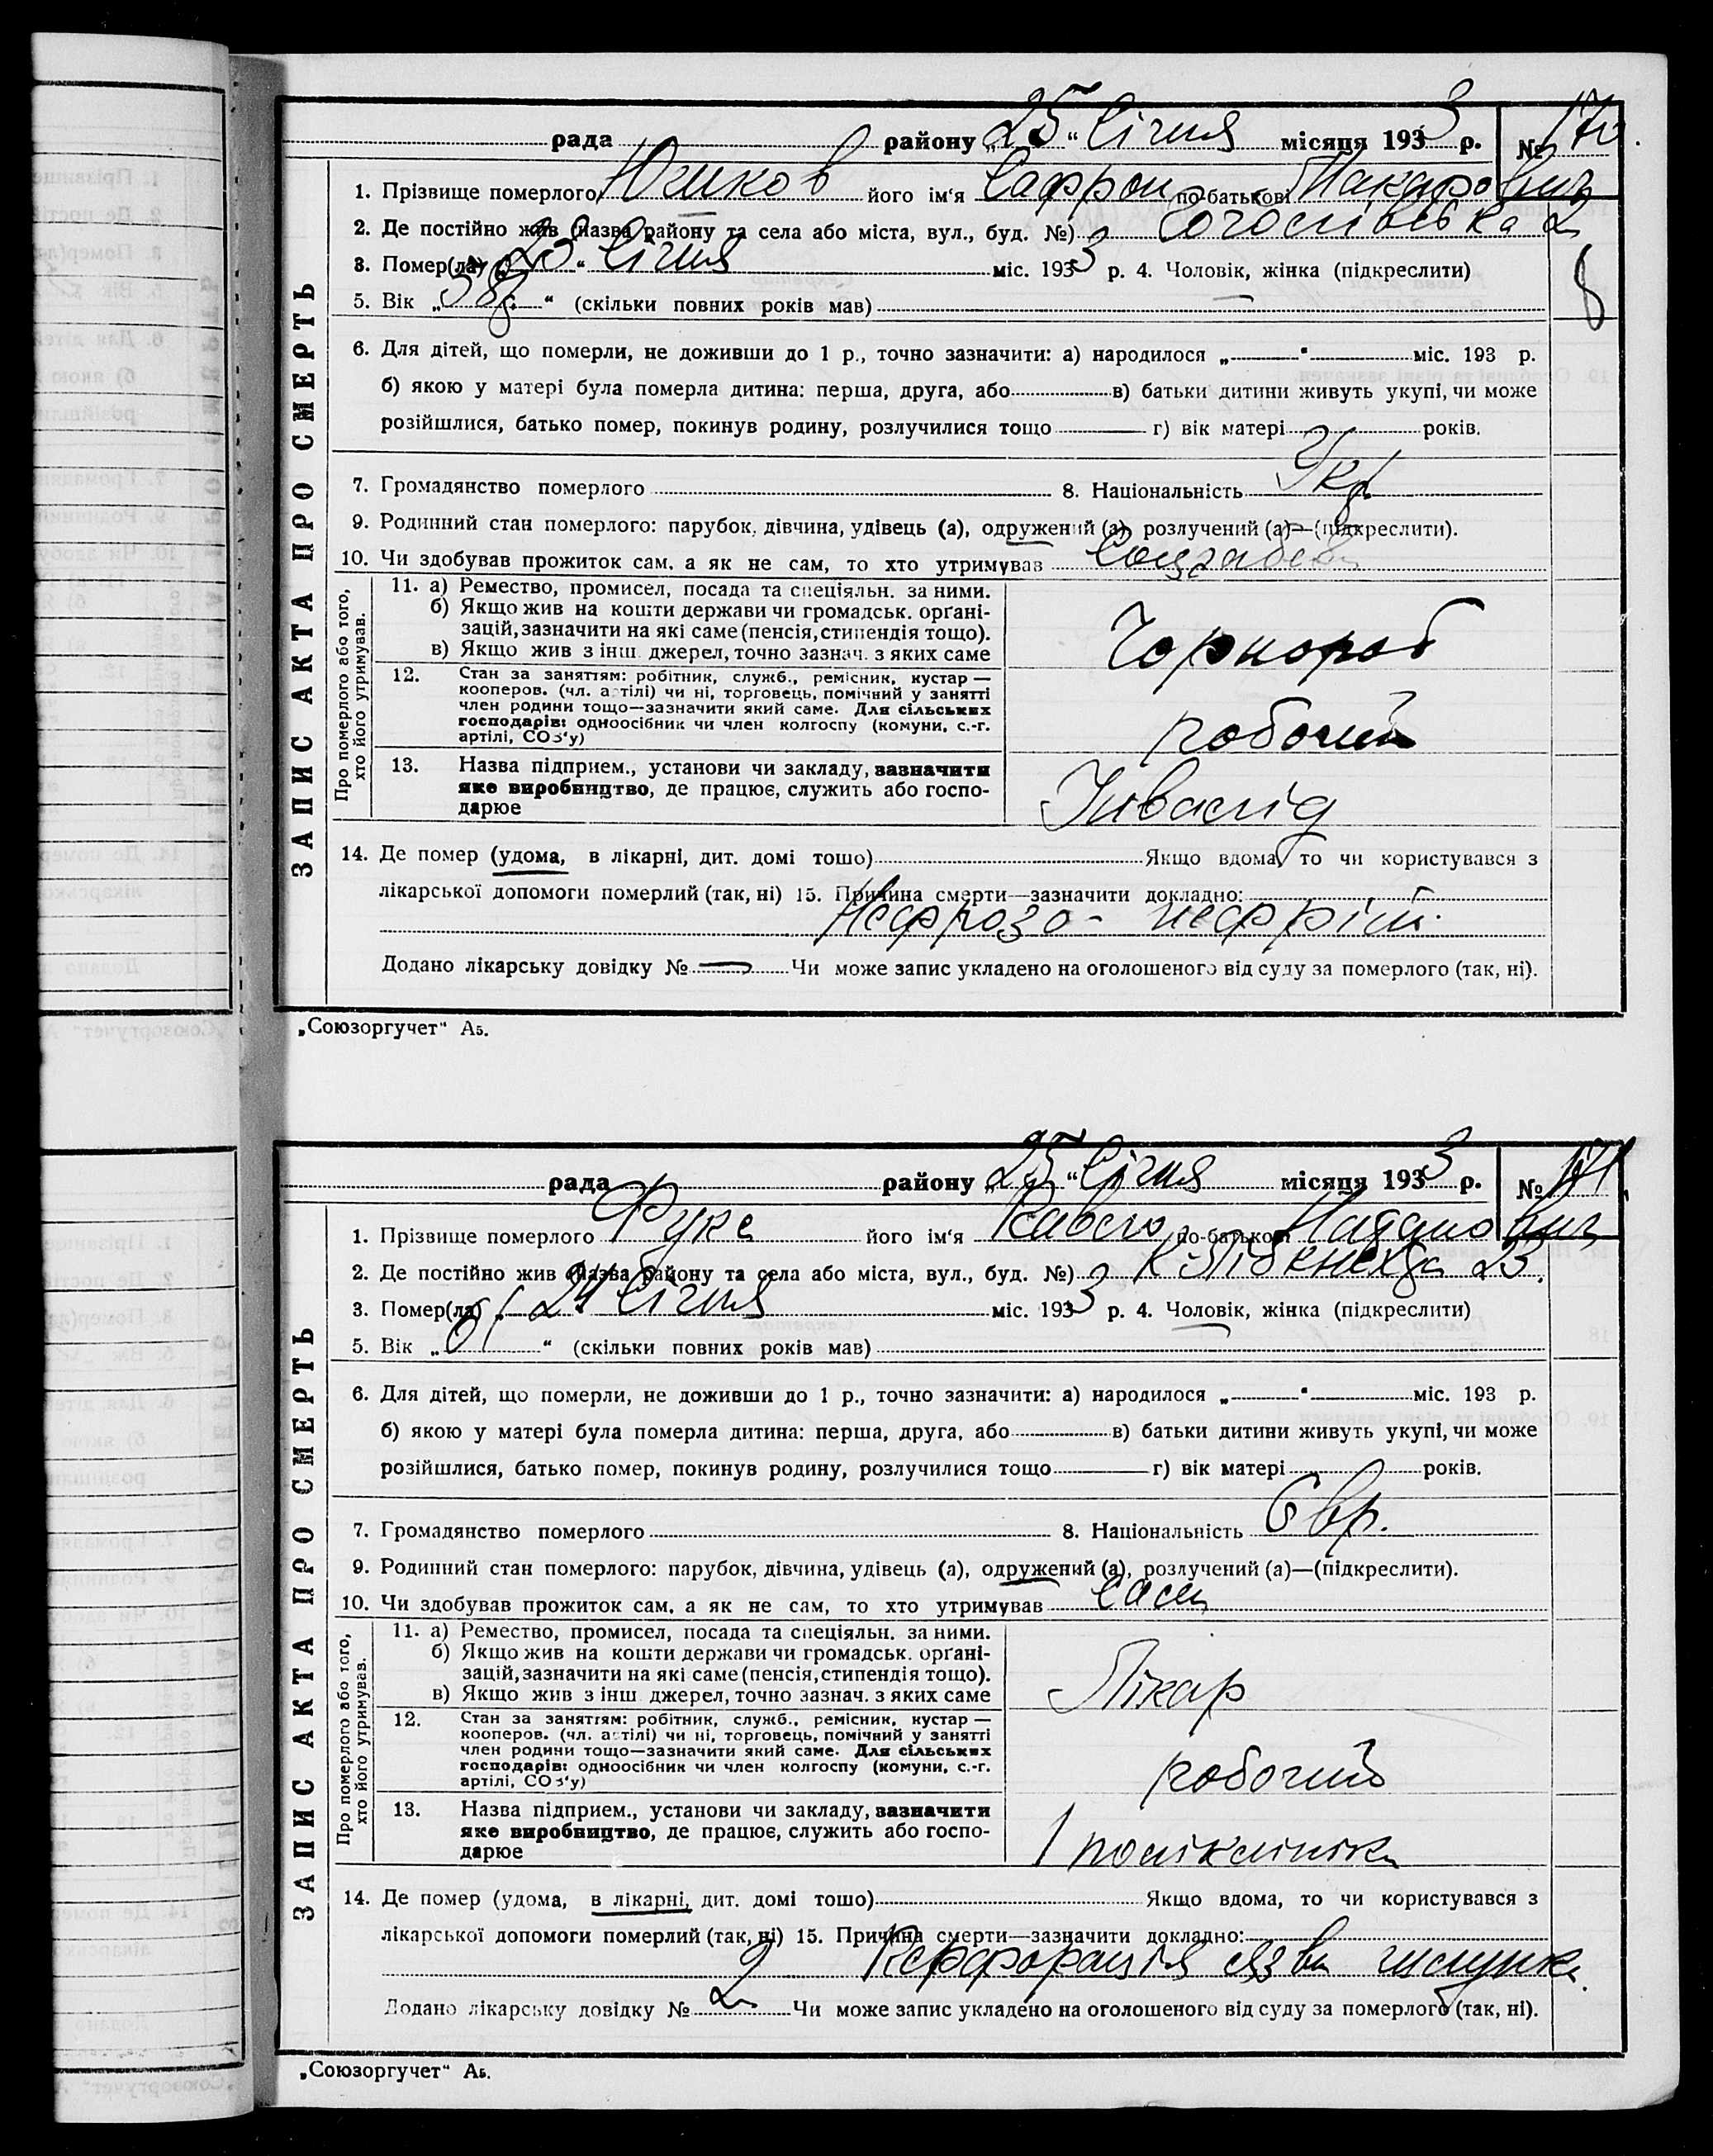 рада району „25“ Січня місяця 1933 р. № 170.
1. Прізвище померлого Юшков його ім‘я Сафрон по-батькові Макарович
2. Де постійно жив (назва району та села або міста, вул., буд. №)
3. Помер(ла) Січня міс. 1933 р. 4. Чоловік, жінка (підкреслити)
5. Вік „58р.“ (скільки повних років мав)
6. Для дітей, що померли, не доживши до 1 р., точно зазначити: а) народилося „ “ міс. 193 р.
б) якою у матері була померла дитина: перша, друга, або в) батьки дитини живуть укупі, чи може
розійшлися, батько помер, покинув родину, розлучилися тощо г) вік матері років.
7. Громадянство померлого 8. Національність Укр
9. Родинний стан померлого: парубок, дівчина, удівець (а), одружений (а), розлучений (а)—(підкреслити).
10. Чи здобував прожиток сам, а як не сам, то хто утримував
ЗАПИС АКТА ПРО СМЕРТЬ
Про померлого або того, хто його утримував.
11. а) Ремество, промисел, посада та спеціяльн. за ними.
б) Якщо жив на кошти держави чи громадськ. орґані-
зацій, зазначити на які саме (пенсія, стипендія тощо).
в) Якщо жив з інш джерел, точно зазнач. з яких саме
Чорнороб
12. Стан за заняттям: робітник, служб., ремісник, кустар —
кооперов. (чл. артілі) чи ні, торговець, помічний у занятті
член родини тощо—зазначити який саме. Для сільських
господарів: одноосібник чи член колгоспу (комуни, с.-г.
артілі, СОЗ‘у)
робочий
13. Назва підприєм., установи чи закладу, зазначити
яке виробництво, де працює, служить або госпо-
дарює
Інвалід
14. Де помер (удома, в лікарні, дит. домі тошо) Якщо вдома, то чи користувався з
лікарської допомоги померлий (так, ні) 15. Причина смерти—зазначити докладно:
Нефрозо- нефріт.
Додано лікарську довідку № — Чи може запис укладено на оголошеного від суду за померлого (так, ні).
„Союзоргучет“ А5.
рада району „25“ Січня місяця 1933 р. № 171.
1. Прізвище померлого Фукс його ім‘я по-батькові Натанович
2. Де постійно жив (назва району та села або міста, вул., буд. №) К Лібкнехта 23.
3. Помер(ла) „24 Січня міс. 1933 р. 4. Чоловік, жінка (підкреслити)
5. Вік „61“ (скільки повних років мав)
6. Для дітей, що померли, не доживши до 1 р., точно зазначити: а) народилося „ “ міс. 193 р.
б) якою у матері була померла дитина: перша, друга, або в) батьки дитини живуть укупі, чи може
розійшлися, батько помер, покинув родину, розлучилися тощо г) вік матері років.
7. Громадянство померлого 8. Національність Євр.
9. Родинний стан померлого: парубок, дівчина, удівець (а), одружений (а), розлучений (а)—(підкреслити).
10. Чи здобував прожиток сам, а як не сам, то хто утримував сам
ЗАПИС АКТА ПРО СМЕРТЬ
Про померлого або того, хто його утримував.
11. а) Ремество, промисел, посада та спеціяльн. за ними.
б) Якщо жив на кошти держави чи громадськ. орґані-
зацій, зазначити на які саме (пенсія, стипендія тощо).
в) Якщо жив з інш джерел, точно зазнач. з яких саме
Лікар
12. Стан за заняттям: робітник, служб., ремісник, кустар —
кооперов. (чл. артілі) чи ні, торговець, помічний у занятті
член родини тощо—зазначити який саме. Для сільських
господарів: одноосібник чи член колгоспу (комуни, с.-г.
артілі, СОЗ‘у)
робочий
13. Назва підприєм., установи чи закладу, зазначити
яке виробництво, де працює, служить або госпо-
дарює
1 поліклініка
14. Де помер (удома, в лікарні, дит. домі тошо) Якщо вдома, то чи користувався з
лікарської допомоги померлий (так, ні) 15. Причина смерти—зазначити докладно:
Перфорація язви шлунка.
Додано лікарську довідку № 2 Чи може запис укладено на оголошеного від суду за померлого (так, ні).
„Союзоргучет“ А5.